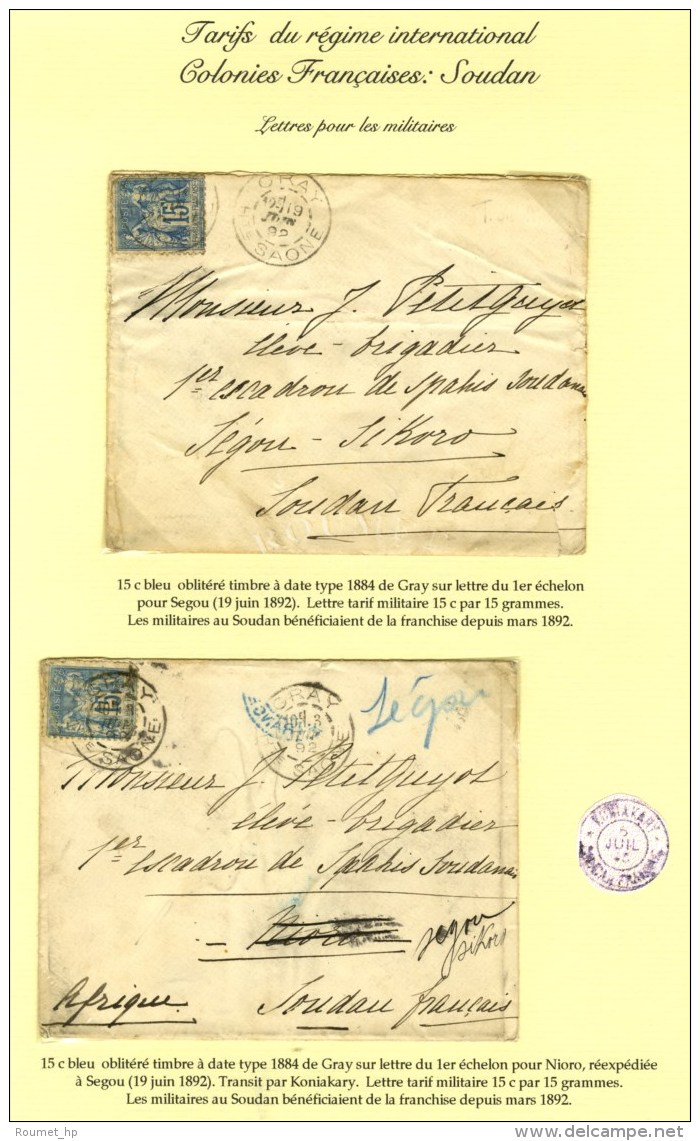 Tarifs du régime international
Colonies Françaises: Soudan
Lettres pour les militaires
15
GRAY
19
JUIN
92
SAONE
Monsieur J. PetitGuyot
élève-brigadier
1er escadron de Spahis Soudanais
Ségou-Sikoro
Soudan Français
15 c bleu oblitéré timbre à date type 1884 de Gray sur lettre du 1er échelon
pour Segou (19 juin 1892). Lettre tarif militaire 15 c par 15 grammes.
Les militaires au Soudan bénéficiaient de la franchise depuis mars 1892.
15
SAONE
GRAY
92
SAONE
Ségou
Monsieur J. PetitGuyot
élève-brigadier
1er escadron de Spahis Soudanais
- Nioro segou
sikoro
Afrique. Soudan français
KONIAKARY
5
JUIL
15 c bleu oblitéré timbre à date type 1884 de Gray sur lettre du 1er échelon pour Nioro, réexpédiée
à Segou (19 juin 1892). Transit par Koniakary. Lettre tarif militaire 15 c par 15 grammes.
Les militaires au Soudan bénéficiaient de la franchise depuis mars 1892.
© Roumet_hp